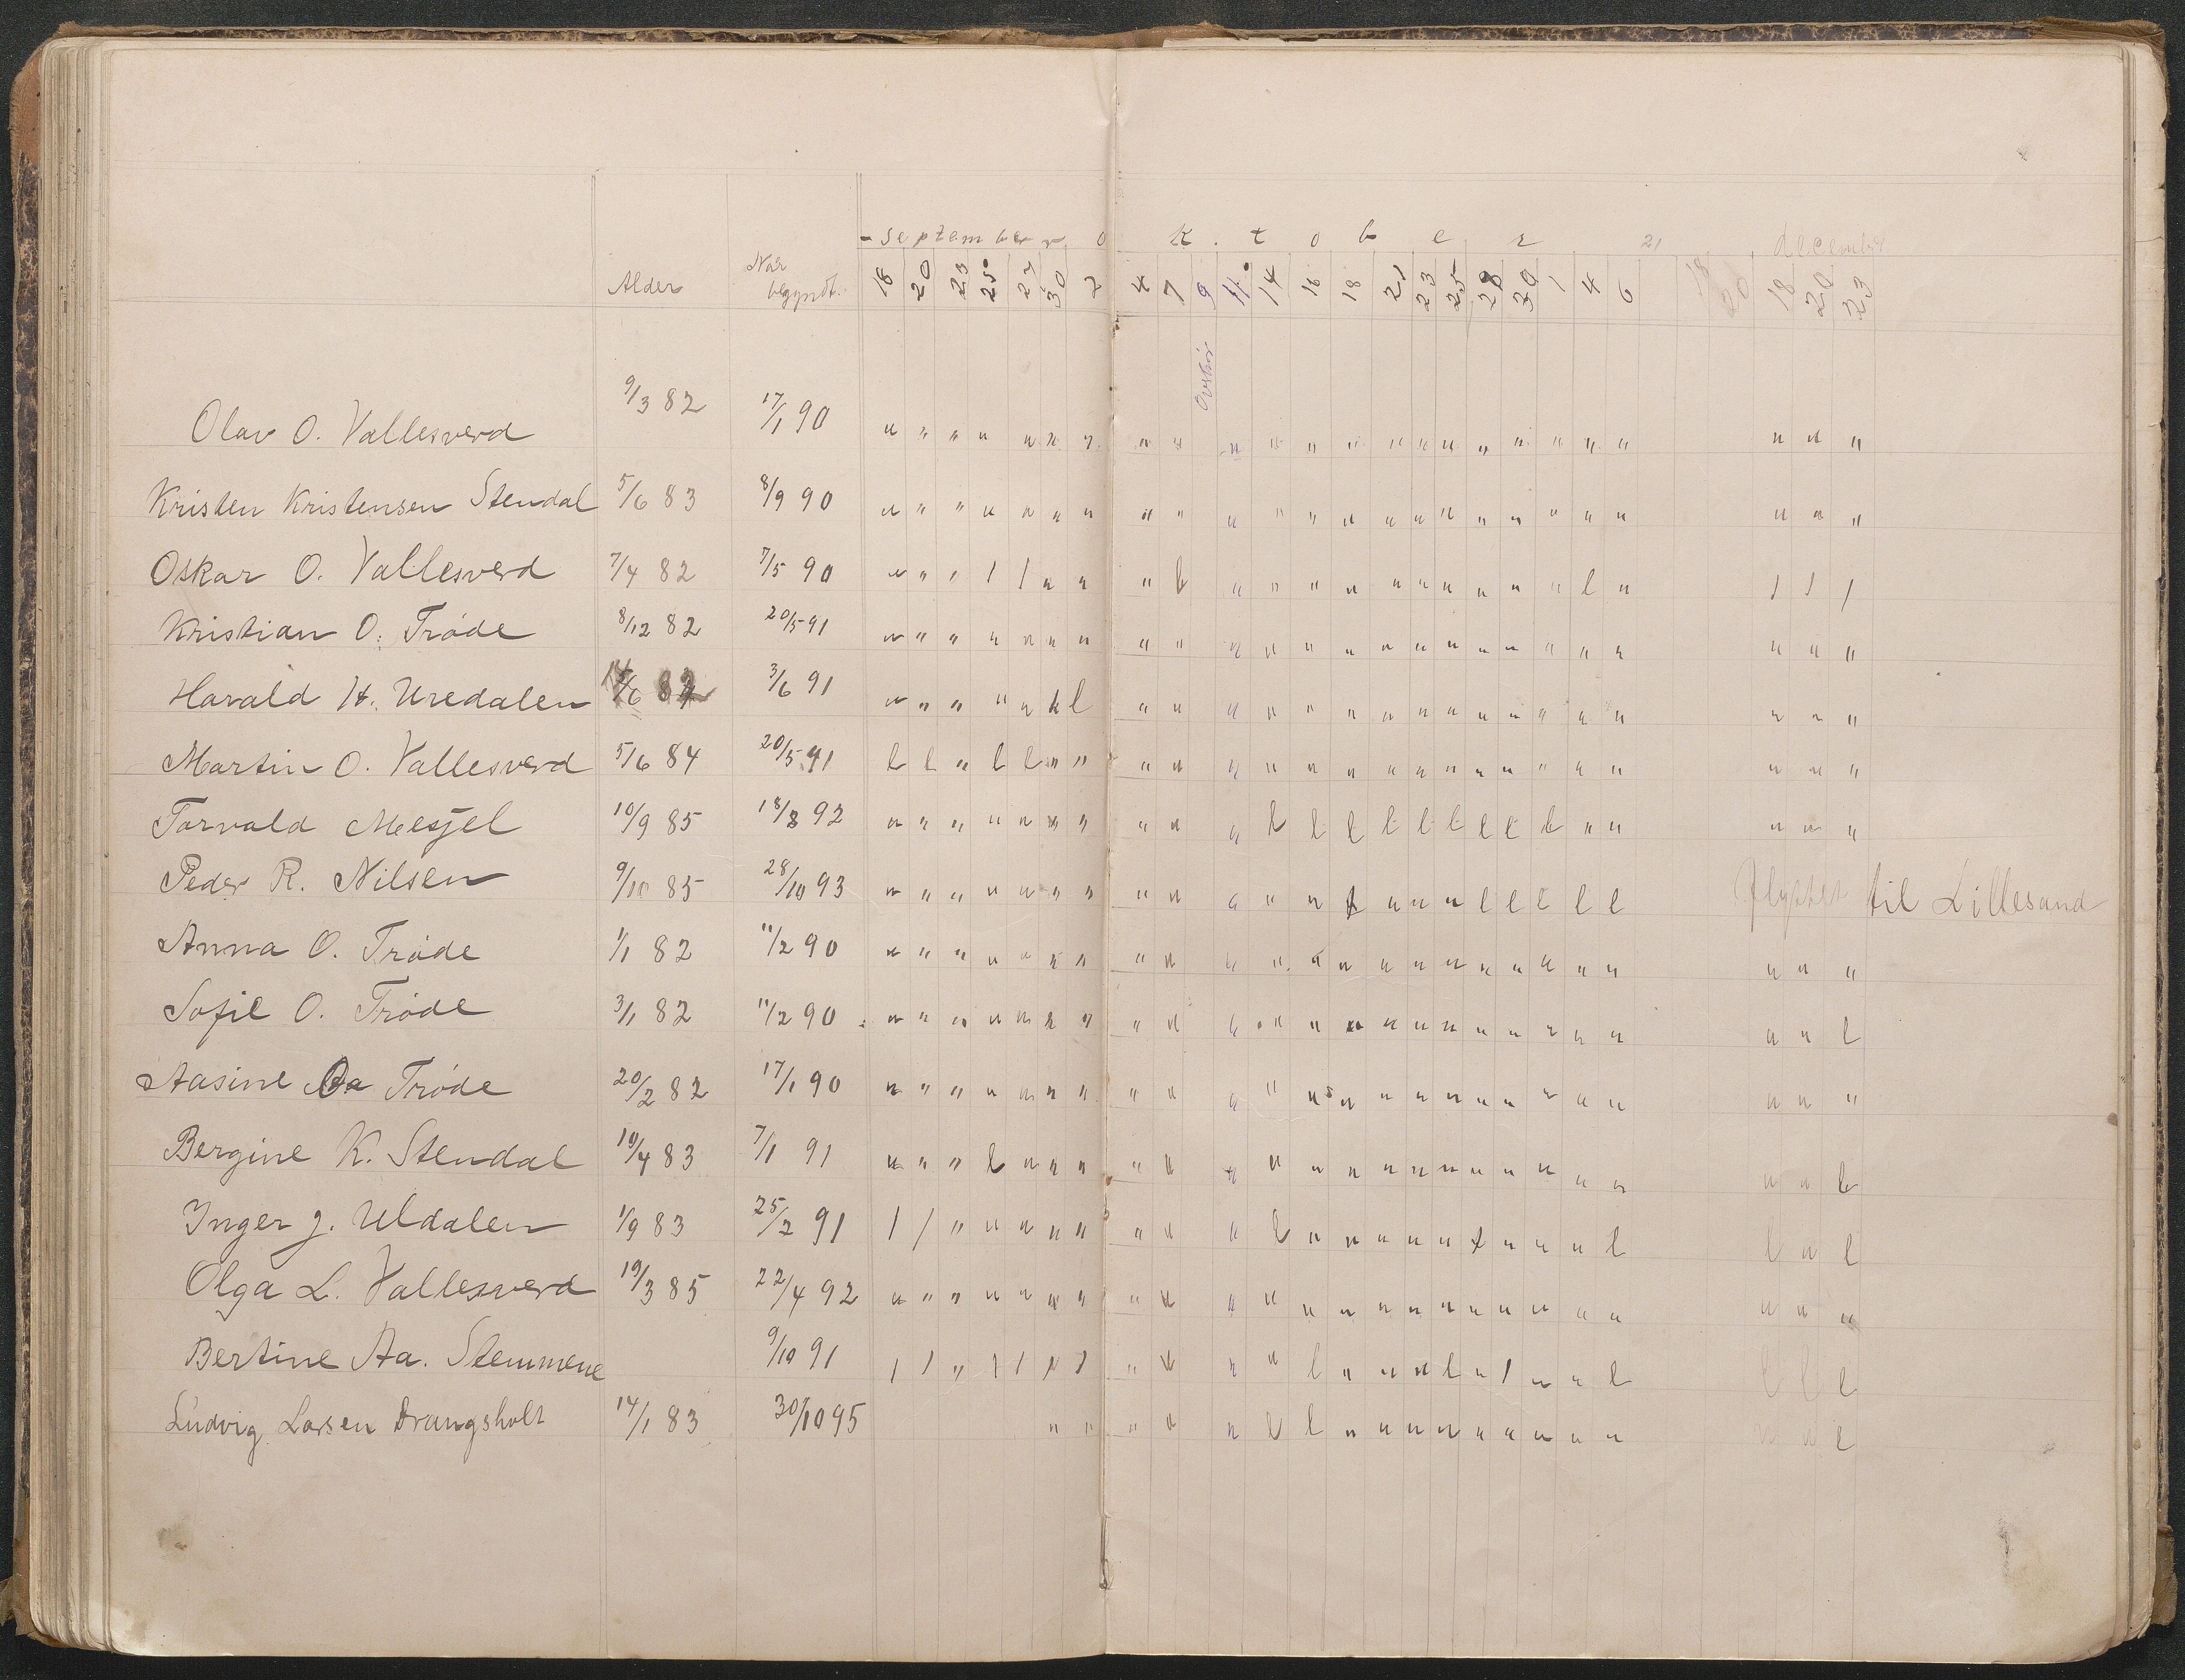 september oktober 21 december
Alder Når begyndt. 18 20 23 25 27 30 2 4 7 9 11 14 16 18 21 23 25 28 30 1 4 6 18 20 18 20 23
Olav O. Vallesverd 9/3 82 17/1 90 " " " " " " " " " " " " " " " " " " " " " " " "
Kristen Kristensen Stendal 5/6 83 8/9 90 " " " " " " " " " " " " " " " " " " " " " " " "
Oskar O. Vallesverd 7/4 82 7/5 90 " " " / / " " " l " " " " " " " " " " l " / / /
Kristian O. Trøde 8/12 82 20/5 91 " " " " " " " " " " " " " " " " " " " " " " " "
Harald H. Uredalen 3/6 91 " " " " " l " " " " " " " " " " " " " " " " "
Martin O. Vallesverd 5/6 84 20/5 91 l l " l l " " " " " " " " " " " " " " " " " " "
Torvald Mesel 10/9 85 18/8 92 " " " " " " " " " " l l l l l l l l l " " " " "
Peder R. Nilsen 9/10 85 28/10 93 " " " " " " " " " " " " l " " " l l l l l flyttet til Lillesand
Anna O. Trøde 1/1 82 11/2 90 " " " " " " " " " " " " " " " " " " " " " " " "
Sofie O. Trøde 3/1 82 11/2 90 " " " " " " " " " " " " " " " " " " " " " " " l
Aasine Trøde 20/2 82 17/1 90 " " " " " " " " " " " " " " " " " " " " " " " "
Bergine K. Stendal 10/4 83 7/1 91 " " " l " " " " " " " " " " " " " " " " " " " l
Inger J. Uldalen 1/9 83 25/2 91 / / " " " " " " " " l " " " " " l " " " l l " l
Olga L. Vallesverd 19/3 85 22/4 92 " " " " " " " " " " " " " " " " " " " " " " " "
Bertine Aa. Stemmene 9/10 91 / / " / / / / " " " " l " " " l " / " " l l l l
Ludvig Larsen Drangsholt 14/1 83 30/10 95 " " " " " l l " " " " " " " " " " " l